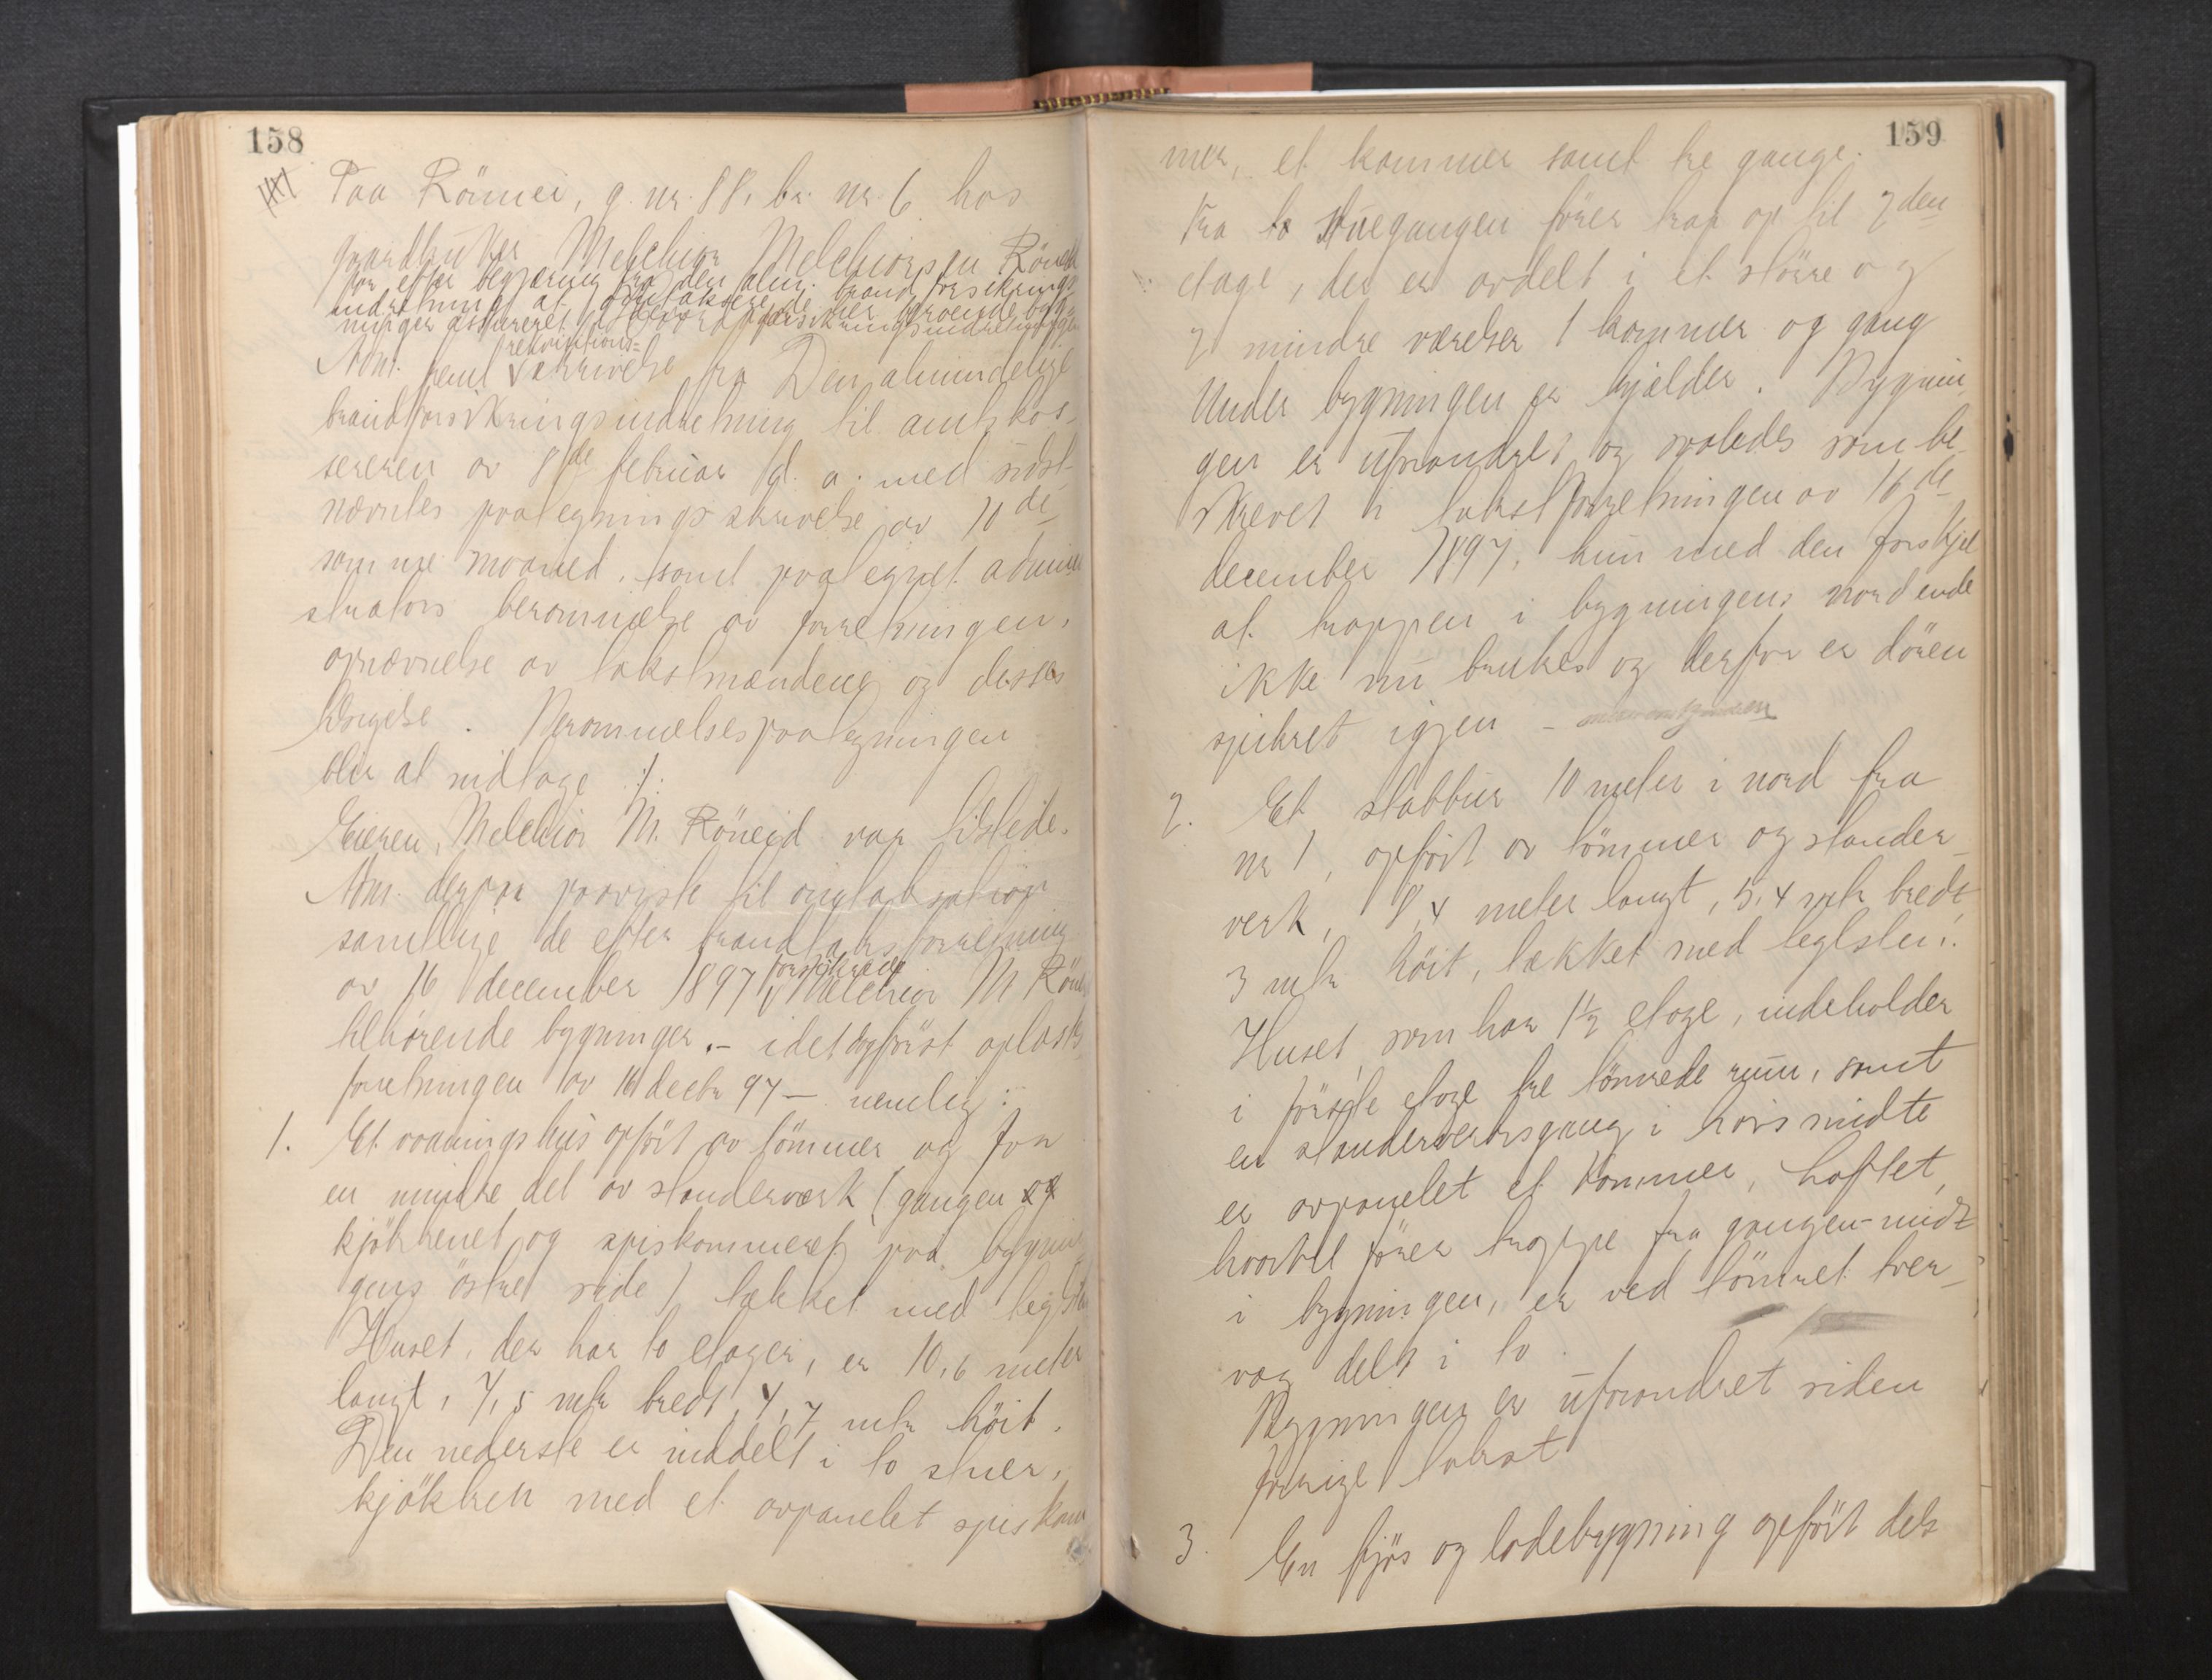 158
Paa Rönei, g. nr. 88, br. nr. 6 hos
gaardbruker Melchior Melchiorsen Röneid
for efter begjæring fra den alm. brandforsikrings
indretning at omtaksere de her værende byg-
ninger assureret i brandforsikringsindretningen
rekvisitions-
Adm. freml skrivelse fra Den almindelige
brandforsikringsindretning til amtskas-
sereren av 8de februar d. a. med sidst-
nævntes paategningsskrivelse av 10de
samme maaned, samt paategnet admini
strators berammelse av forretningen,
opnævnelse av takstmændene og disses
tilsigelse. Berammelsespaategningen
blir at indtage :/:
Eieren, Melchior M. Röneid var tilstede.
Adm. derpaa paaviste til omtaksation
samtlige de efter brandtakstforretning
forsikrede
av 16 december 1897 Melchior M Rönei
tilhörende bygninger.- idet först oplæstes
forretningen av 16 decbr 97 — nemlig:
1. Et vaaningshus opfört av tömmer og for
en mindre del av standerværk (gangen og
kjökkenet og spiskammeret paa bygnin
gens östre side) tækket med teglsten
Huset, der har to etager, er 10,6 meter
langt, 7,5 mtr bredt, 4,7 mtr höit.
Den nederste er inddelt i to stuer,
kjökken med et avpanelet spiskam
159
mer, et kammer samt tre gange.
Fra to stuegangen förer trap op til 2den
etage, der er avdelt i et större og
2 mindre værelser 1 kammer og gang
Under bygningen er kjælder. Bygnin
gen er uforandret og saaledes som be
skrevet i takstforretningen av 16de
december 1897, kun med den forskjel
at trappen i bygningens nordende
ikke nu brukes og derfor er dören
spikret igjen -
2. Et stabbur 10 meter i nord fra
nr 1, opfört av tömmer og stander
verk, 8,4 meter langt, 5,4 mtr bredt,
3 mtr höit, tækket med teglsten.
Huset, som har 1½ etage, indeholder
i förste etage tre tömrede rum, samt
en standerverksgang i hvis midte
er avpanelet et kammer, Loftet,
hvortil förer trappe fra gangen midt
i bygningen, er ved tömret tver-
væg delt i to.
Bygningen er uforandret siden
forrige takst
3. En fjös og ladebygning opfört dels